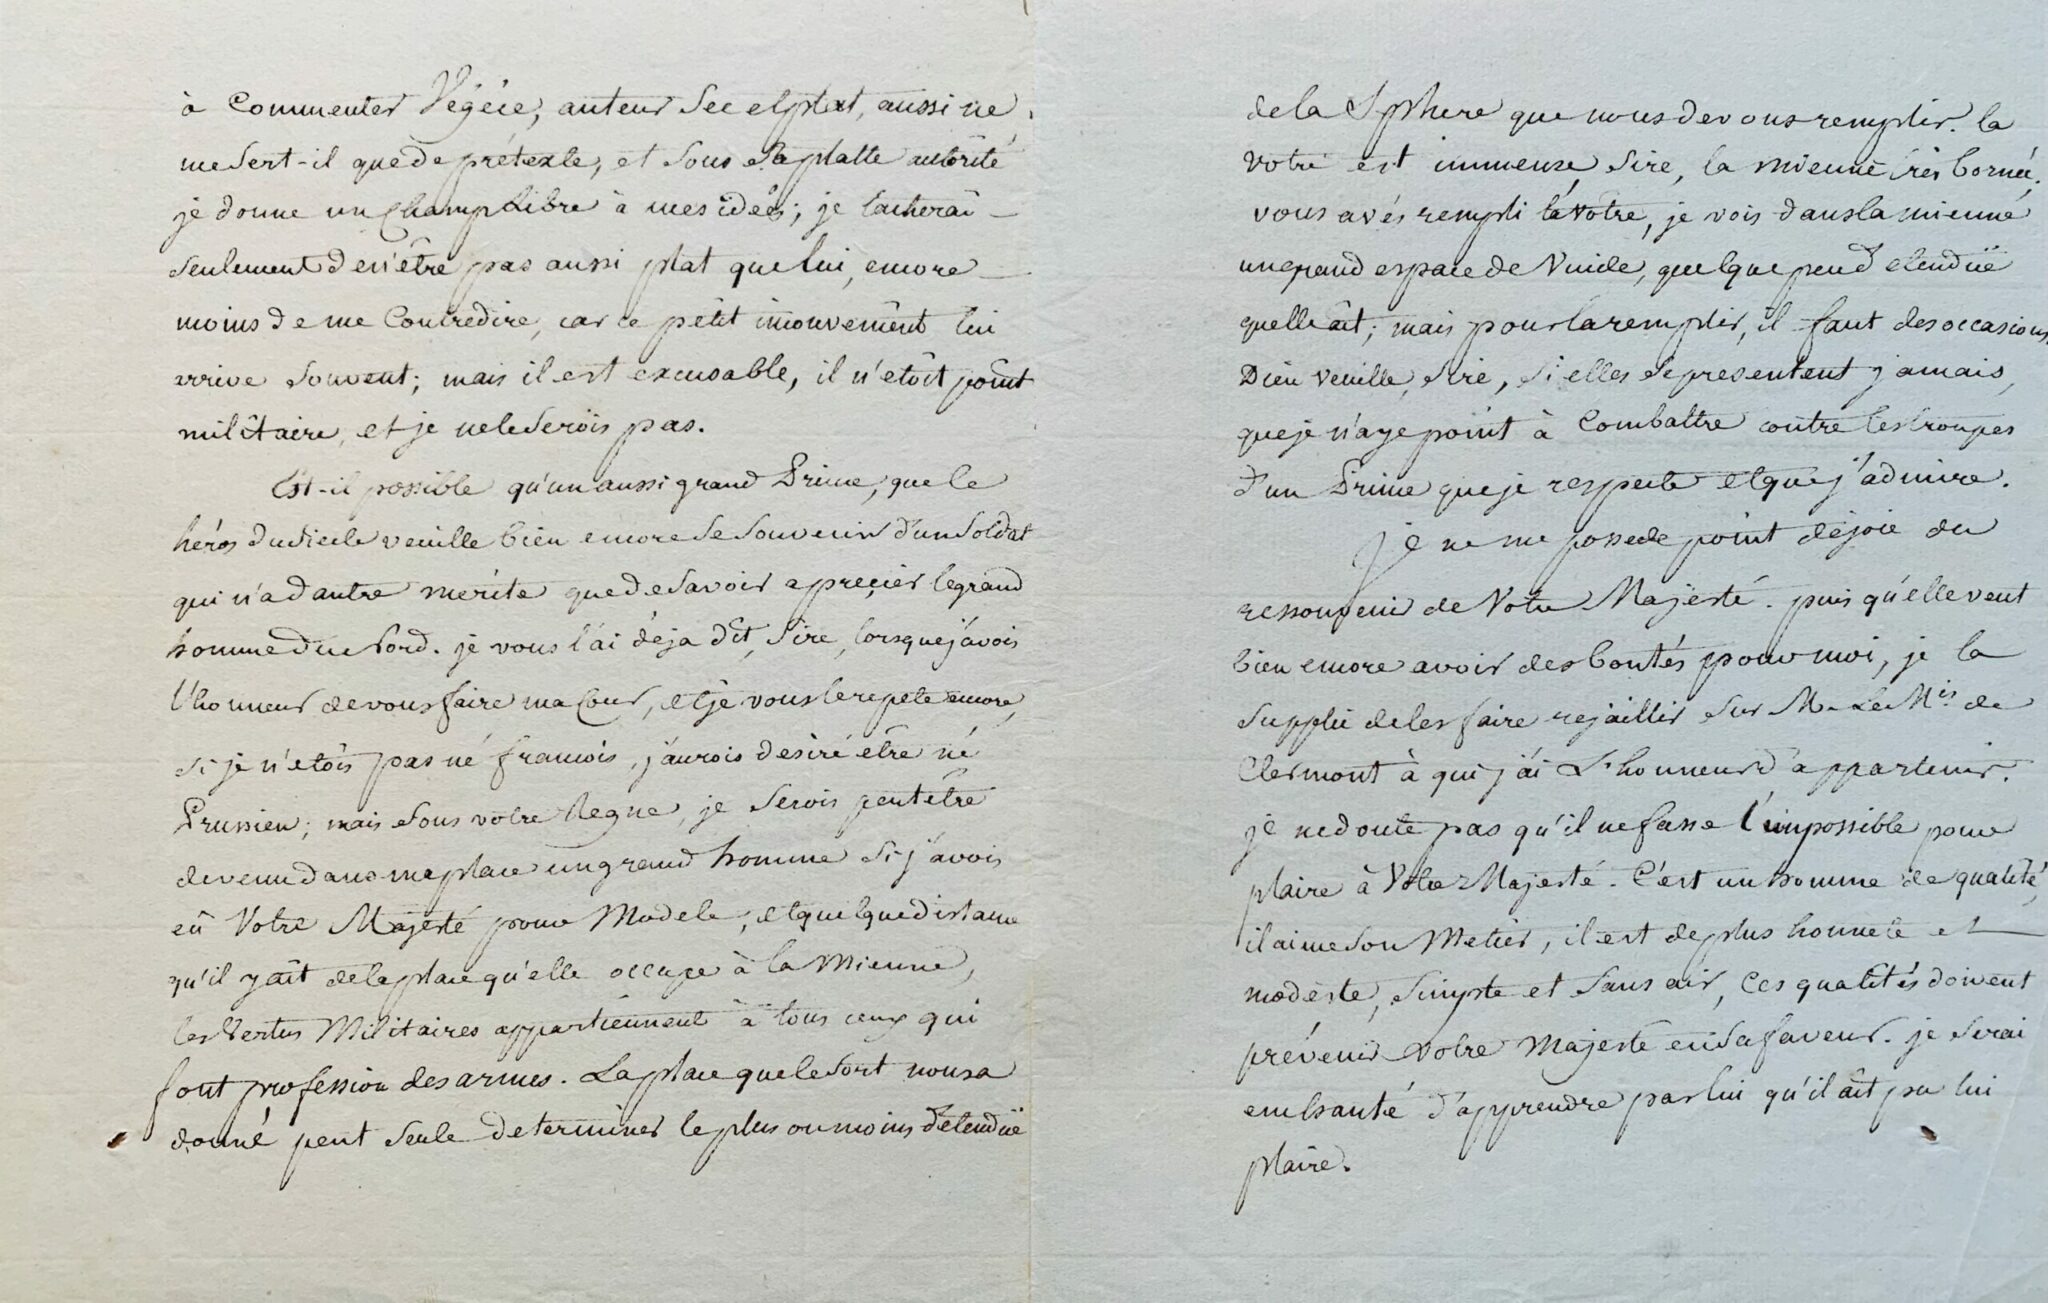 à Commenter Végéce, auteur Sec et plat, aussi ne
me Sert-il que de prétexte, et Sous Sa platte autorité
je donne un Champ Libre à mes idées; je tacherai
Seulement de n'être pas aussi plat que lui, encore
moins de me Contredire, car ce petit inconvenient lui
arrive Souvent; mais il est excusable, il n'etoit point
militaire, et je ne le Serois pas.
Est-il possible qu'un aussi grand Prince, que le
héros du Siecle veuille bien encore Se Souvenir d'un Soldat
qui n'a d'autre merite que de Savoir aprecier le grand
homme du Nord. je vous l'ai déja dit, Sire, lorsque j'avois
l'honneur de vous faire ma Cour, et je vous le repete encore,
Si je n'etois pas né francois, j'aurois desiré être né
Prussien; mais Sous votre Regne, je Serois peut être
devenu dans ma place un grand homme Si j'avois
eû Votre Majesté pour Modele, et quelque distance
qu'il y ait de la place qu'elle occupe à la Mienne,
les Vertus Militaires appartiennent à tous ceux qui
font profession des armes. La place que le Sort nous a
donné peut Seule determiner le plus ou moins d'etenduë
de la Sphere que nous devons remplir. la
Votre est immense, Sire, la Mienne très bornée;
vous avés rempli la Votre, je vois dans la mienne
un grand espace de Vuide, quelque peu d'etenduë
quelle ait; mais pour la remplir, il faut des occasions,
Dieu veuille, Sire, Si elles Se presentent jamais,
que je n'aye point à Combattre contre les troupes
d'un Prince que je respecte et que j'admire.
Je ne me possede point de joie du
ressouvenir de Votre Majesté. puis qu'elle veut
bien encore avoir des bontés pour moi, je la
Supplie de les faire rejaillir Sur M. Le Mis de
Clermont à qui j'ai L'honneur d'appartenir.
je ne doute pas qu'il ne fasse l'impossible pour
plaire à Votre Majesté. C'est un homme de qualité,
il aime Son Metier, il est de plus honnete et
modeste, Simple et Sans air, Ces qualités doivent
prévenir Votre Majesté en Sa faveur. je Serai
enchanté d'apprendre par lui qu'il ait pu lui
plaire.